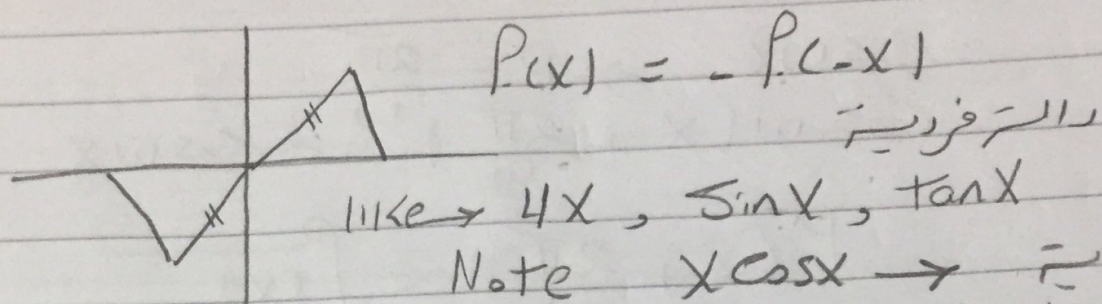 f(x) = - f(-x)
دالة فردية
like → 4x , Sinx , tanx
Note xcosx →